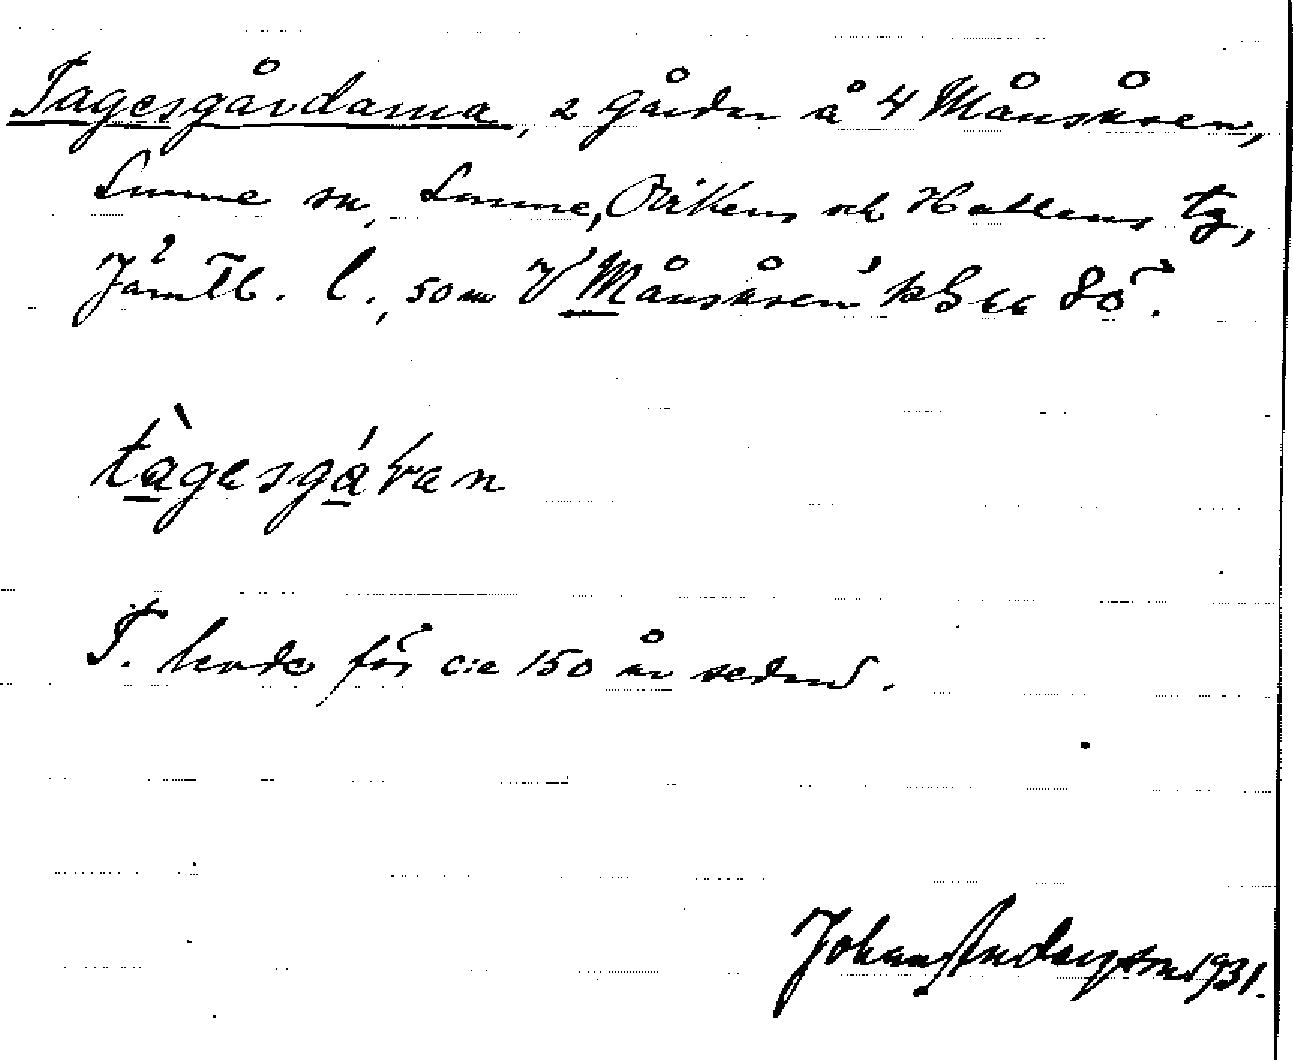 Tagesgårdarna, 2 gårdar å 4 Månsåsen,
Sunne sn, Sunne, Oviken och Hallens tg,
Jämtl. l., som V Månsåsen kbl 66 8ö.
tàgesgáʀan
T. levde för c:a 150 år sedan.
Johan Anderson 1931.